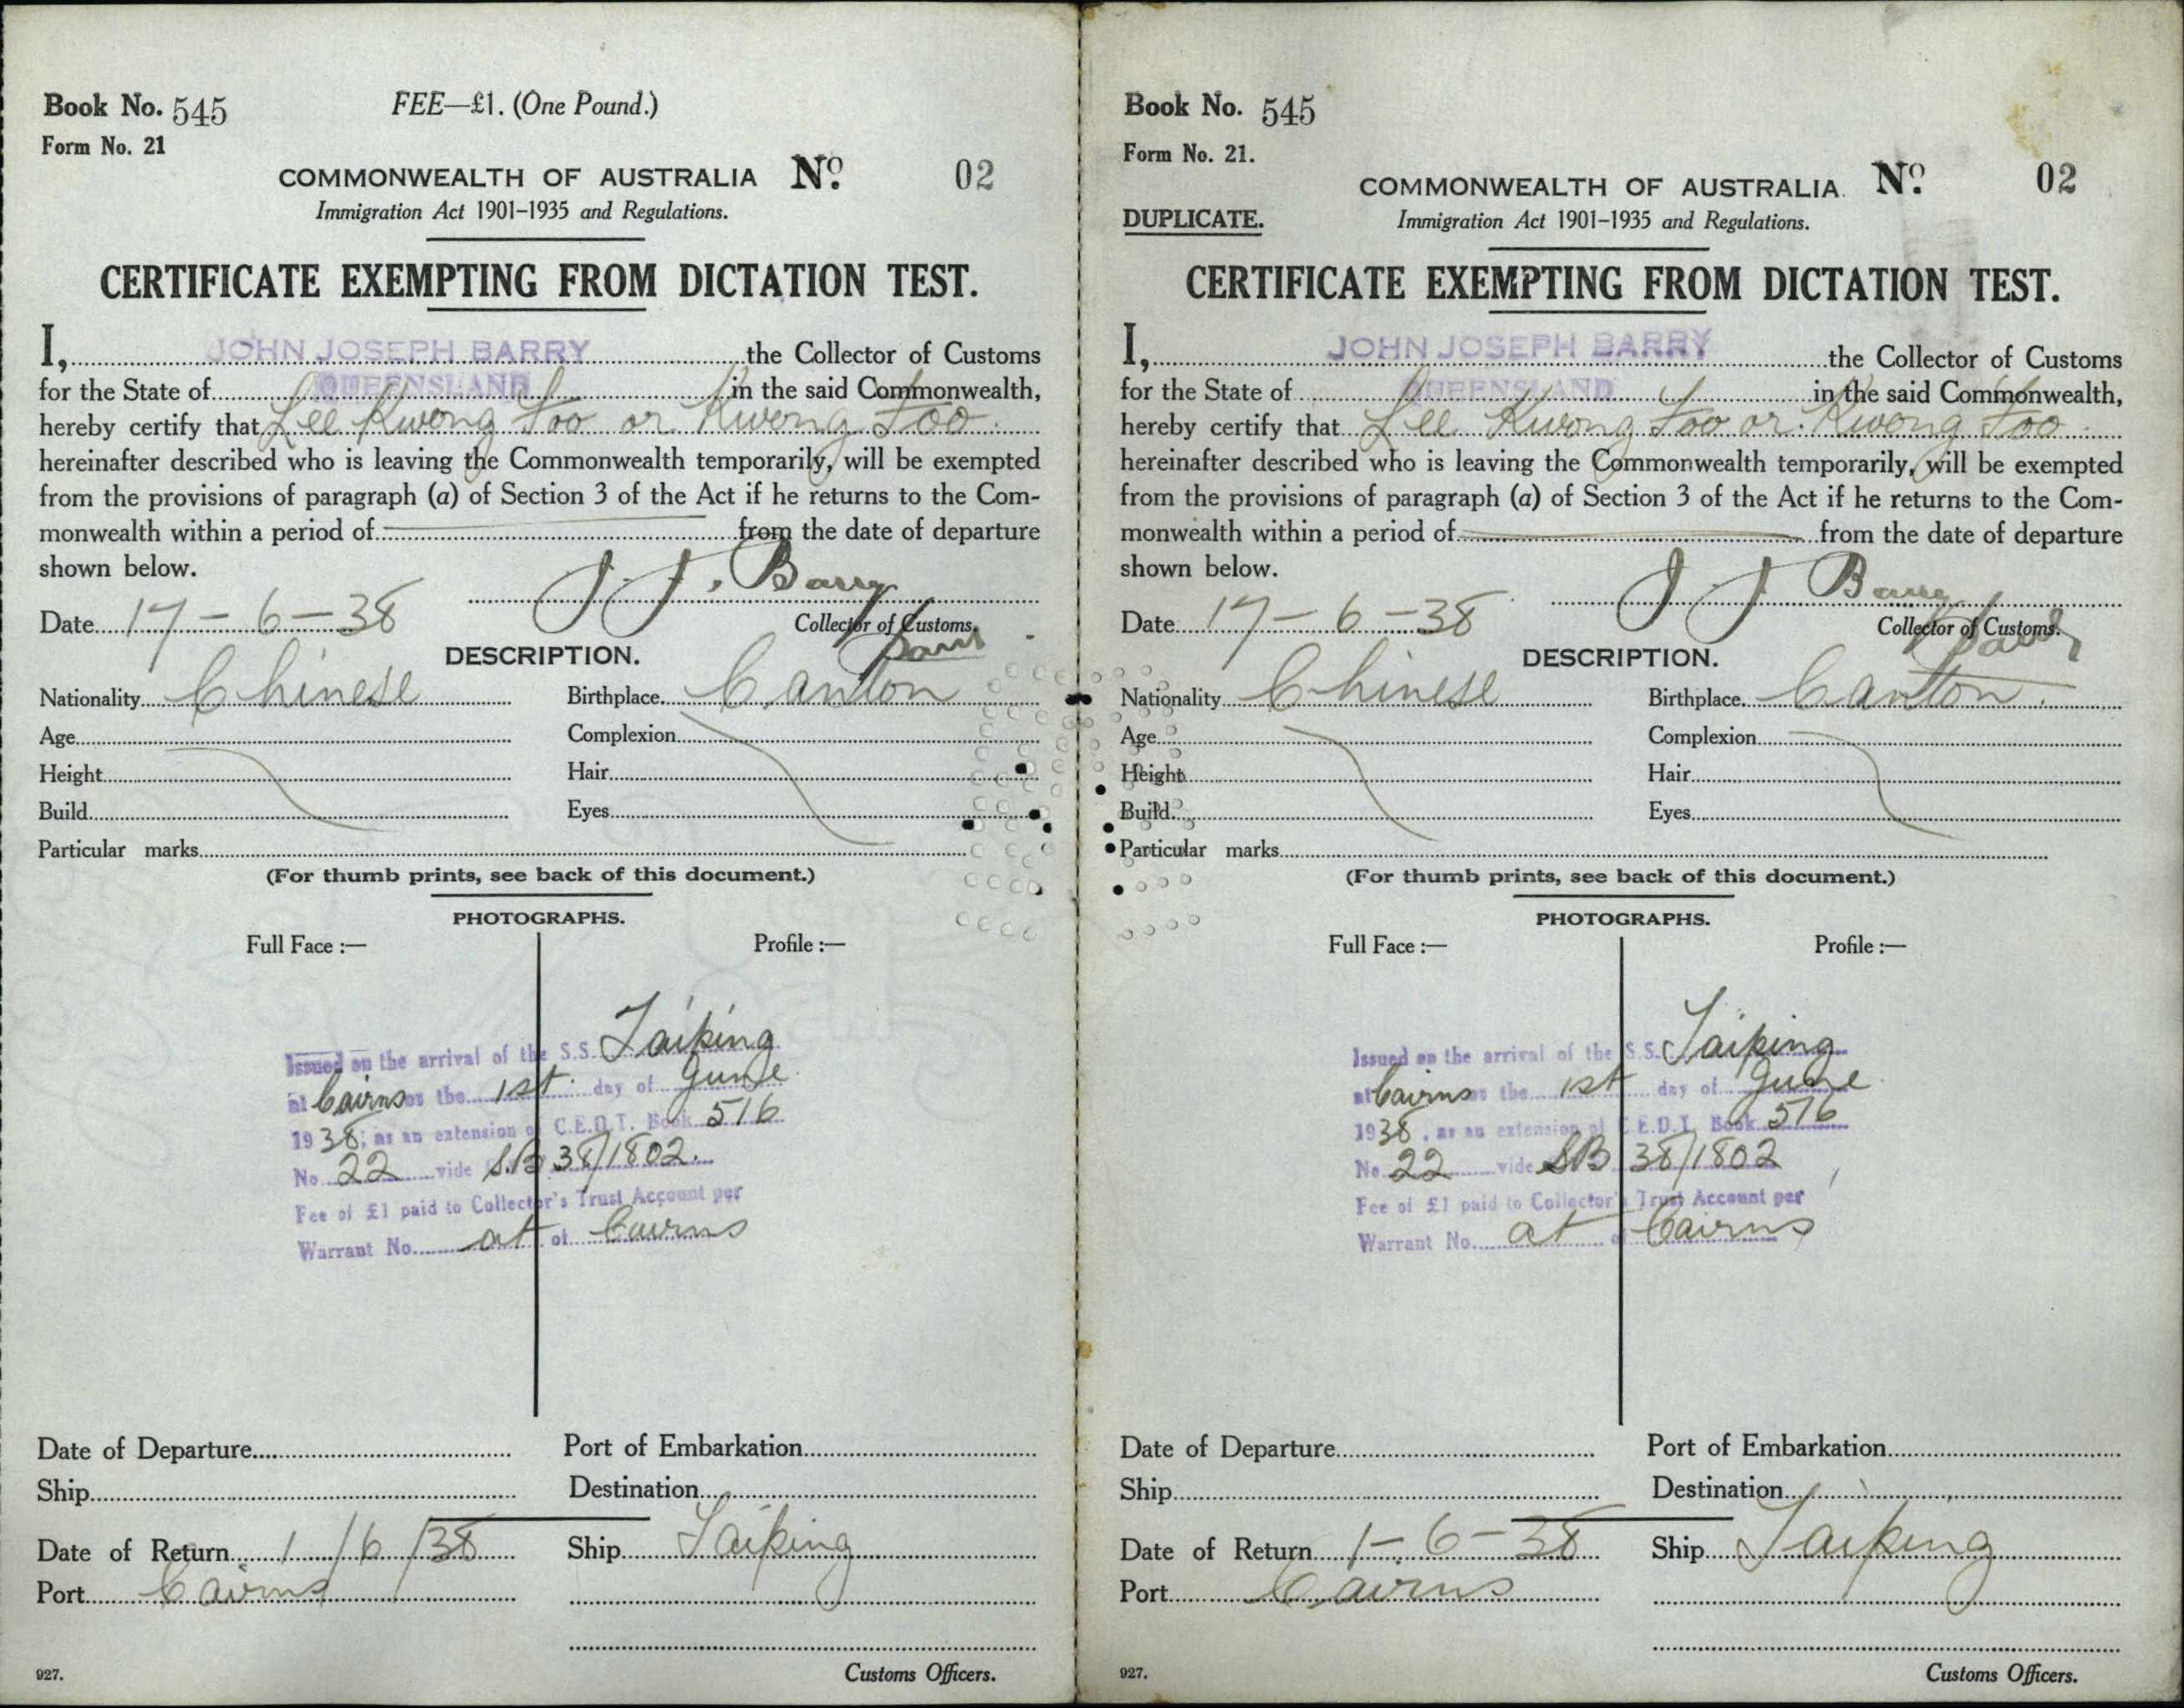 Book No. 545
FEE—£1. (One Pound.)
Form No. 21
COMMONWEALTH OF AUSTRALIA Nº 02
Immigration Act 1901–1935 and Regulations.
CERTIFICATE EXEMPTING FROM DICTATION TEST.
I, JOHN JOSEPH BARRY the Collector of Customs
for the State of QUEENSLAND in the said Commonwealth,
hereby certify that Lee Kwong Foo or Kwong Foo
hereinafter described who is leaving the Commonwealth temporarily, will be exempted
from the provisions of paragraph (a) of Section 3 of the Act if he returns to the Com-
monwealth within a period of from the date of departure
shown below.
J. J. Barry
Date 17-6-38
Collector of Customs.
DESCRIPTION.
Nationality Chinese Birthplace Canton
Age Complexion
Height Hair
Build Eyes
Particular marks
(For thumb prints, see back of this document.)
PHOTOGRAPHS.
Full Face :— Profile :—
Issued on the arrival of the S.S. Taiping
at Cairns on the 1st day of June
1938, as an extension of C.E.D.T. Book 516
No. 22 vide S.B 38/1802.
Fee of £1 paid to Collector's Trust Account per
Warrant No. at of Cairns
Date of Departure Port of Embarkation
Ship Destination
Date of Return 1/6/38 Ship Taiping
Port Cairns
927. Customs Officers.
Book No. 545
Form No. 21.
COMMONWEALTH OF AUSTRALIA. Nº 02
DUPLICATE.
Immigration Act 1901–1935 and Regulations.
CERTIFICATE EXEMPTING FROM DICTATION TEST.
I, JOHN JOSEPH BARRY the Collector of Customs
for the State of QUEENSLAND in the said Commonwealth,
hereby certify that Lee Kwong Foo or Kwong Foo
hereinafter described who is leaving the Commonwealth temporarily, will be exempted
from the provisions of paragraph (a) of Section 3 of the Act if he returns to the Com-
monwealth within a period of from the date of departure
shown below.
J J Barry
Date 17-6-38
Collector of Customs.
DESCRIPTION.
Nationality Chinese Birthplace Canton.
Age Complexion
Height Hair
Build Eyes
Particular marks
(For thumb prints, see back of this document.)
PHOTOGRAPHS.
Full Face :— Profile :—
Issued on the arrival of the S.S. Taiping
at Cairns on the 1st day of June
1938, as an extension of C.E.D.T. Book 516
No. 22 vide SB 38/1802
Fee of £1 paid to Collector's Trust Account per
Warrant No. at of Cairns
Date of Departure Port of Embarkation
Ship Destination
Date of Return 1-6-38 Ship Taiping
Port Cairns
927. Customs Officers.